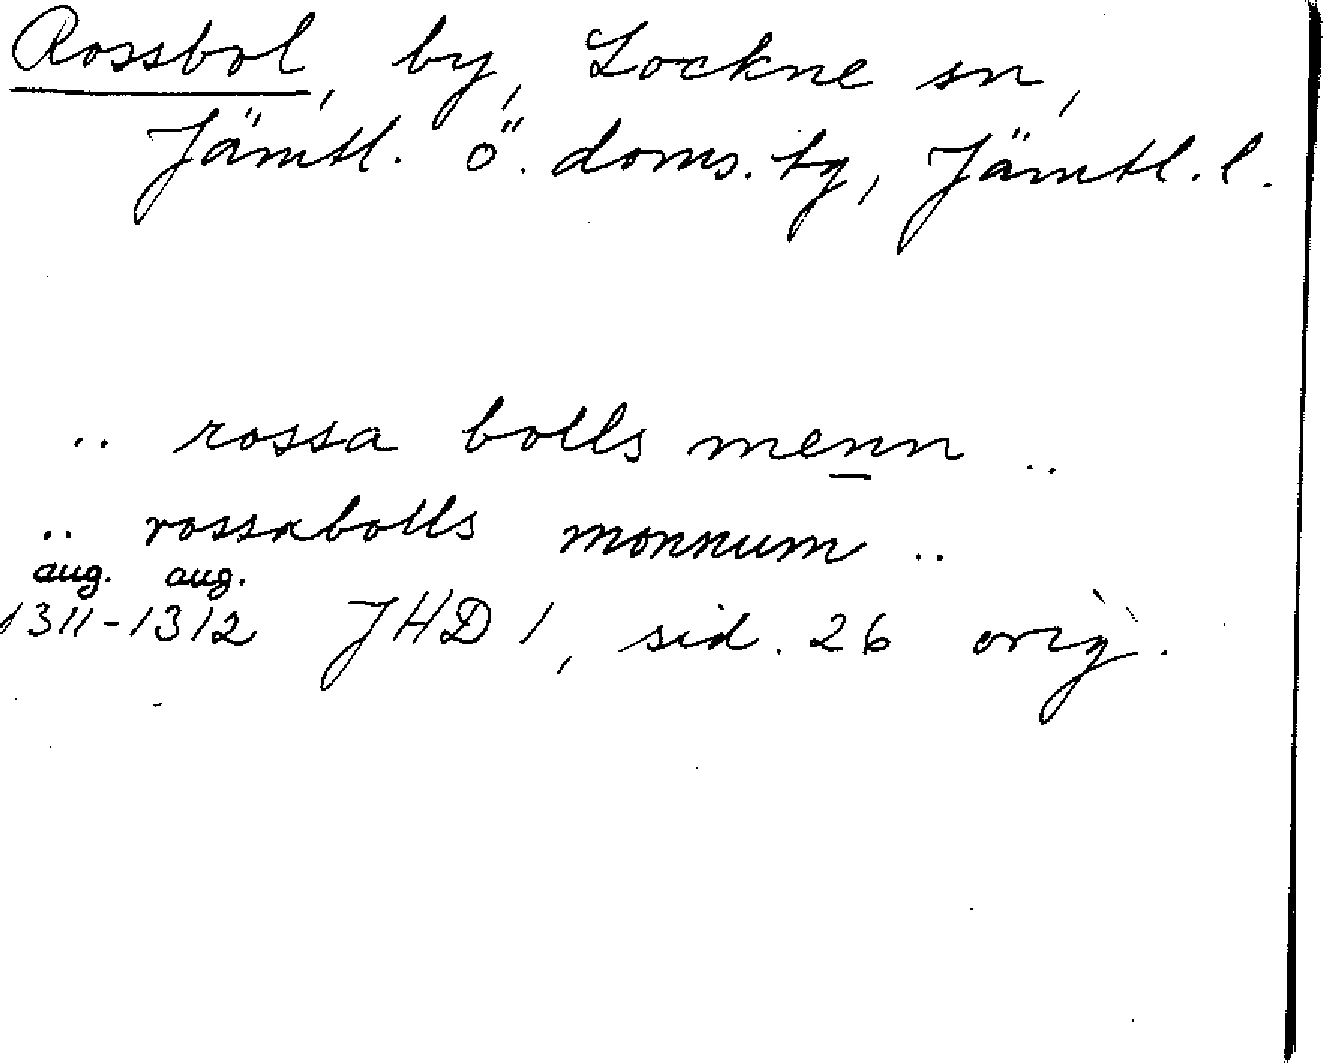 Rossbol, by, Lockne sn,
Jämtl. ö. doms. tg, Jämtl. l.
.. rossa bolls menn ..
.. rossabolls monnum ..
aug. aug.
1311-1312 JHD 1, sid. 26 orig.